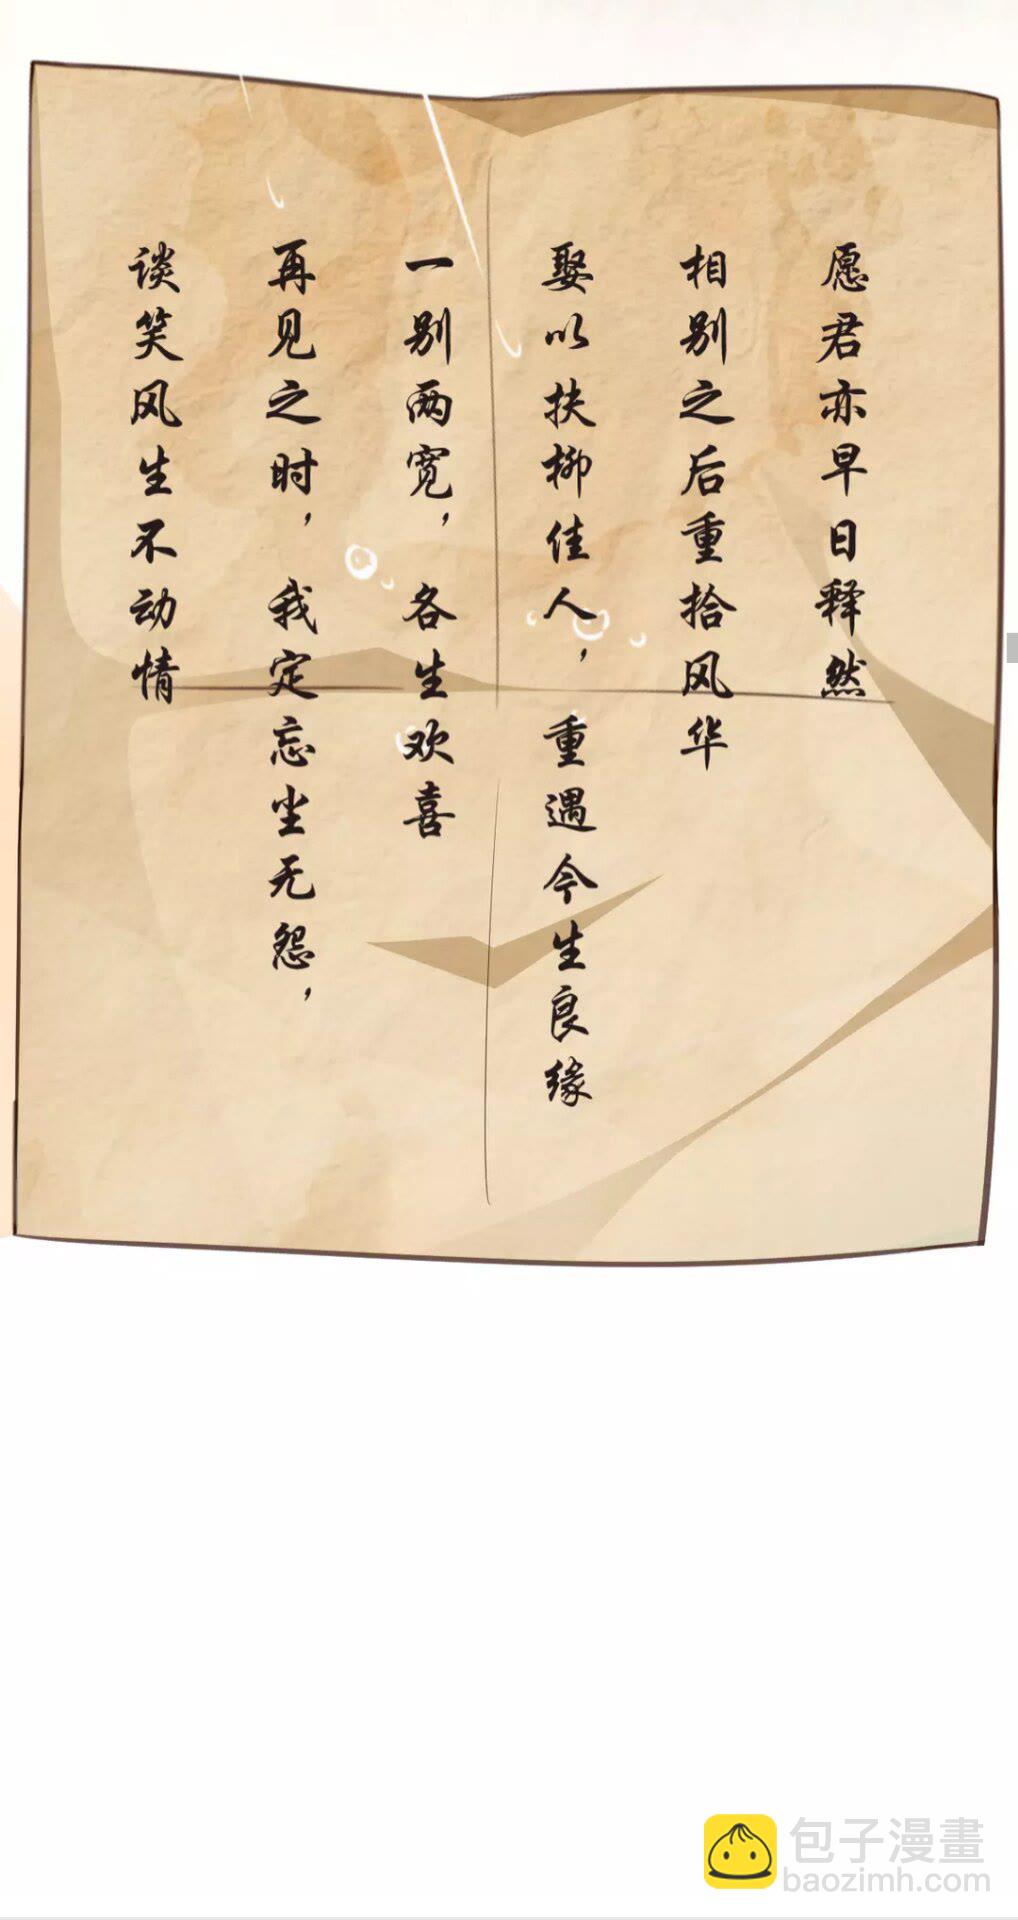 愿君亦早日释然
相别之后重拾风华
娶以扶柳佳人，重遇今生良缘
一别两宽，各生欢喜
再见之时，我定忘尘无怨，
谈笑风生不动情
包子漫畫
baozimh.com